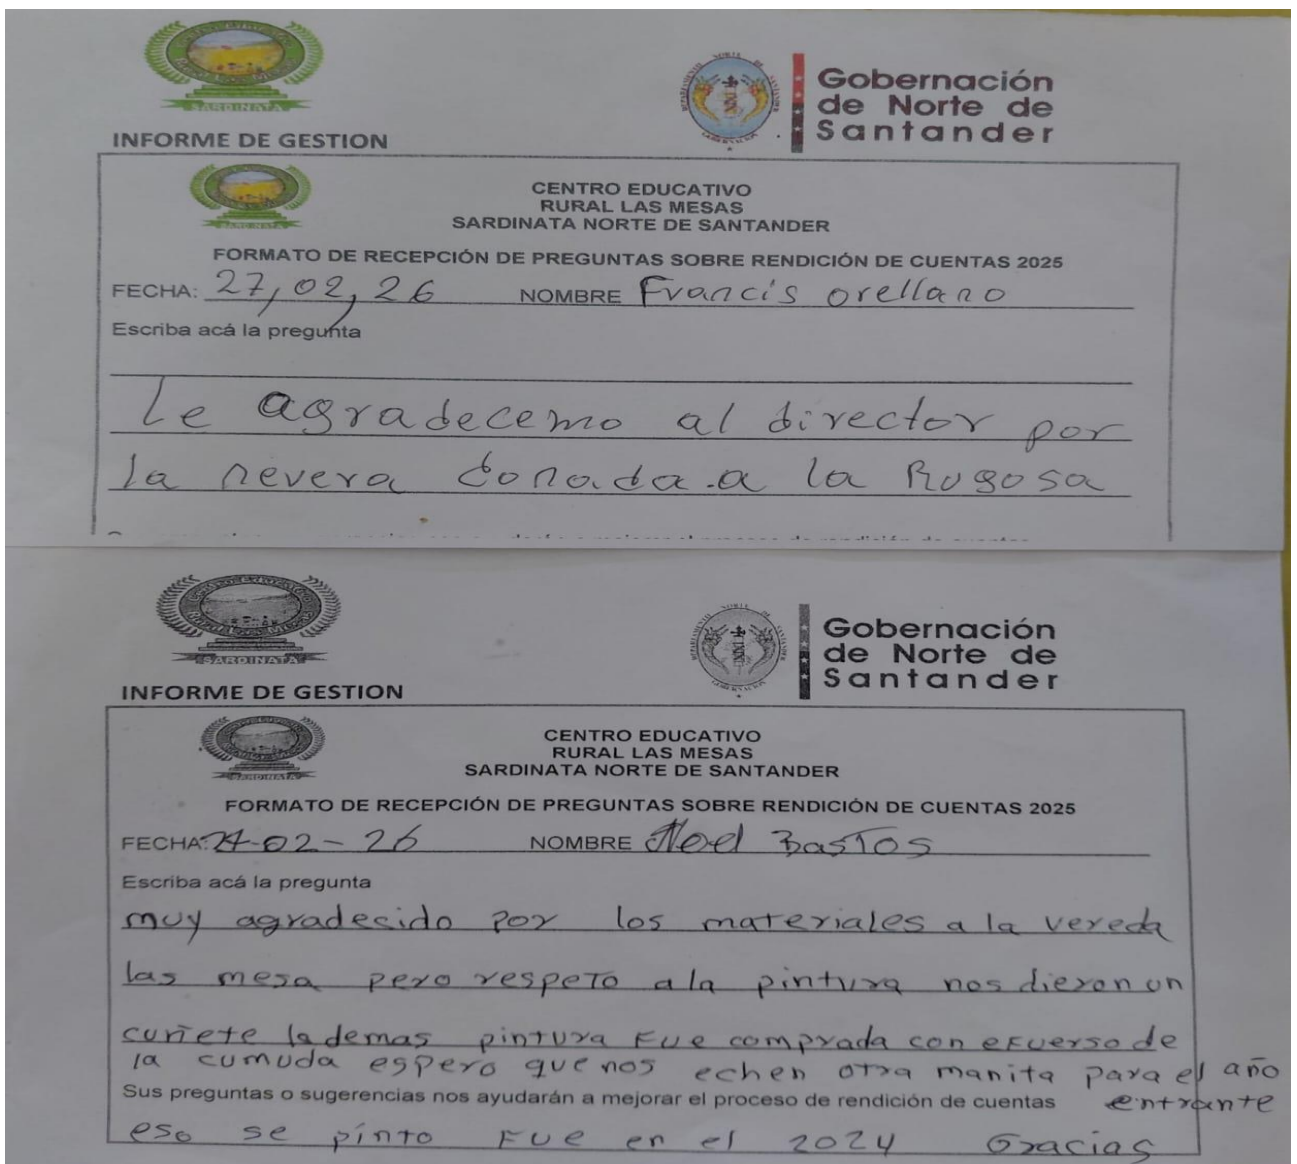 SARDINATA
Gobernación
de Norte de
Santander
INFORME DE GESTION
SARDINATA
CENTRO EDUCATIVO
RURAL LAS MESAS
SARDINATA NORTE DE SANTANDER
FORMATO DE RECEPCIÓN DE PREGUNTAS SOBRE RENDICIÓN DE CUENTAS 2025
FECHA: 27,02,26 NOMBRE Francis orellano
Escriba acá la pregunta
Le agradecemo al director por
la nevera donada.a la Rugosa
SARDINATA
Gobernación
de Norte de
Santander
INFORME DE GESTION
SARDINATA
CENTRO EDUCATIVO
RURAL LAS MESAS
SARDINATA NORTE DE SANTANDER
FORMATO DE RECEPCIÓN DE PREGUNTAS SOBRE RENDICIÓN DE CUENTAS 2025
FECHA: -02-26 NOMBRE Noel BasTos
Escriba acá la pregunta
muy agradecido por los materiales a la vereda
las mesa pero respeTo a la pintura nos dieron un
cuñete lademas pintura Fue comprada con exuerso de
la cumuda espero que nos echen otra manita para el año
entrante
Sus preguntas o sugerencias nos ayudarán a mejorar el proceso de rendición de cuentas
eso se pinto Fue en el 2024 Gracias